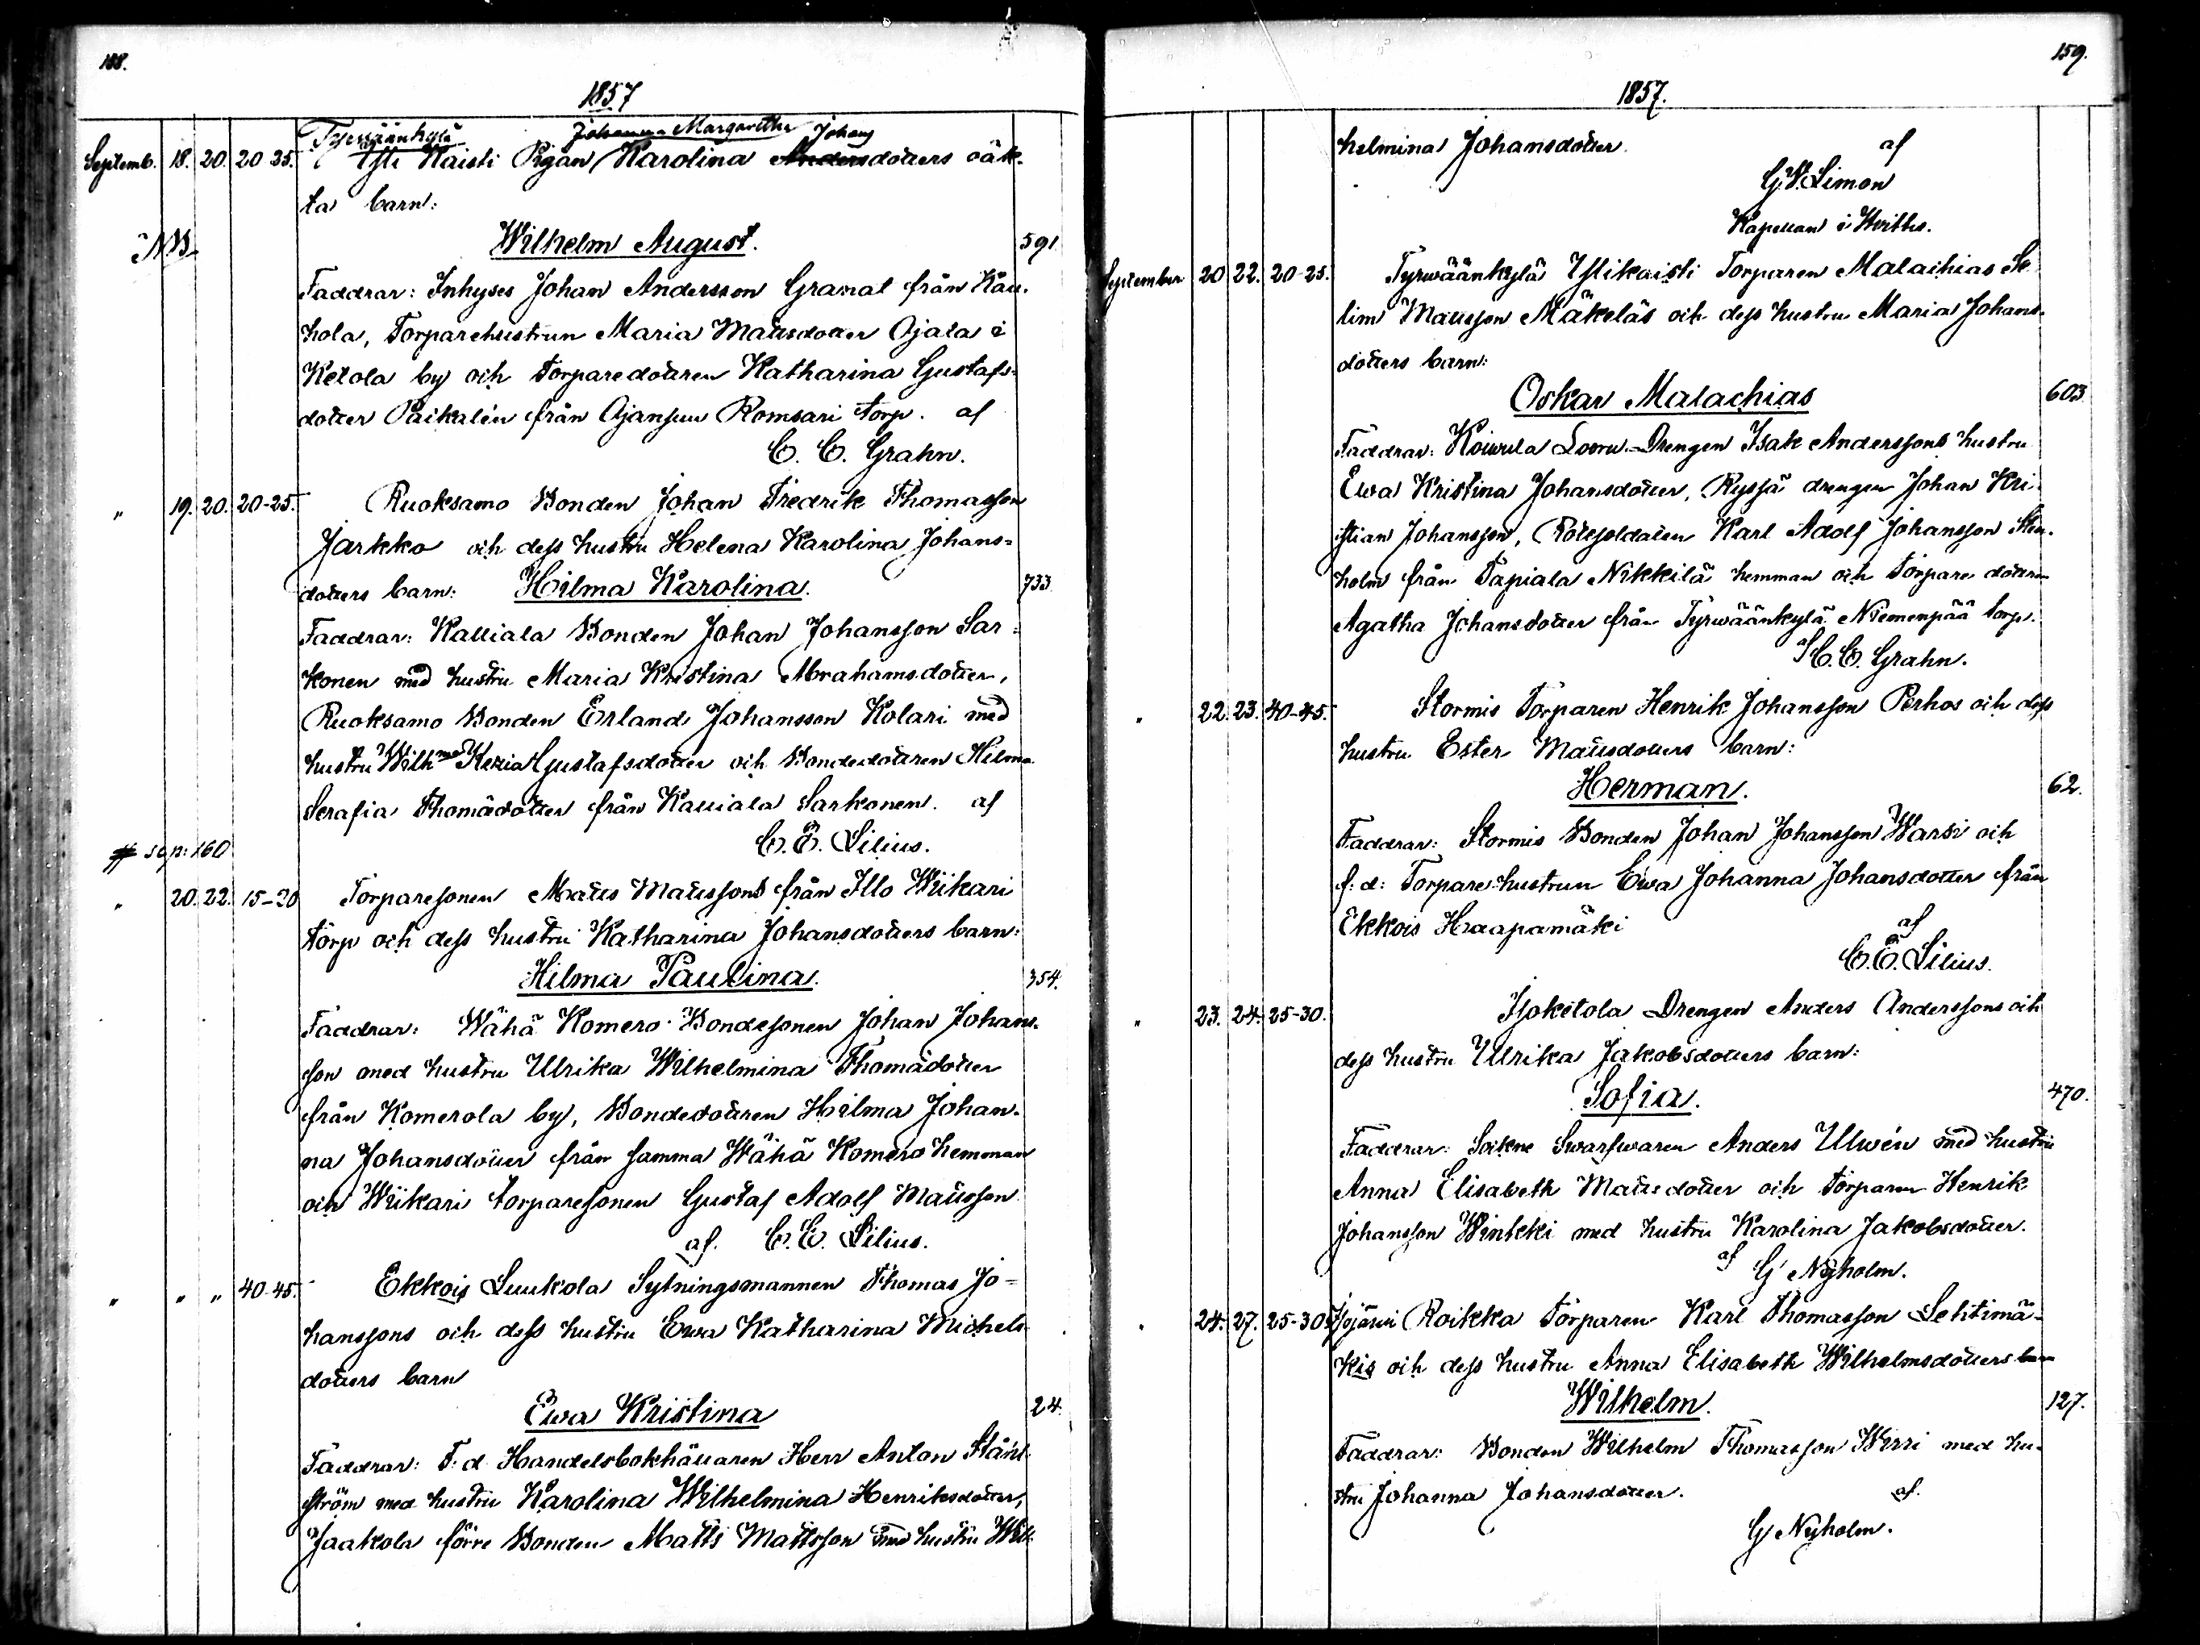 158.
1857
Tyrwäänkylä Johanna Margaretha Johans
Septemb. 18. 20. 20 25. Ysti Kaisti Pigan Karolina Andersdotters oäk-
ta barn:
NB. Wilhelm August. 591
Faddrar: Inhyses Johan Andersson Granat från Kau-
hola, Torparehustrun Maria Mattsdotter Ojala i
Ketola by och Torparedottren Katharina Gustafs-
dotter Paikalén från Ojansuu Romsari torp. af
C. C. Grahn.
" 19. 20. 20-25. Ruoksamo Bonden Johan Fredrik Thomasson
Jarkko och dess hustru Helena Karolina Johans-
dotters barn: Hilma Karolina. 733
Faddrar: Kauiala Bonden Johan Johansson Sar-
konen med hustru Maria Kristina Abrahamsdotter,
Ruoksamo Bonden Erland Johansson Kolari med
hustru Wilhma Kezia Gustafsdotter och Bondedottren Hilma
Serafia Thomädotter från Kauiala Sarkonen. af
C. E. Lilius.
# sep: 160
" 20. 22. 15-20 Torparesonen Matts Mattssons från Illo Wiikari
torp och dess hustru Katharina Johansdotters barn:
Hilma Paulina. 354.
Faddrar: Wähä Komero Bondesonen Johan Johans-
son med hustru Ulrika Wilhelmina Thomädotter
från Komerola by, Bondedottren Hilma Johan-
na Johansdotter från samma Wähä Komero hemman
och Wiikari torparesonen Gustaf Adolf Mattsson
af. C. E. Lilius.
" " " 40-45. Ekkois Luukola Sytningsmannen Thomas Jo-
hanssons och dess hustru Ewa Katharina Michels-
dotters barn
Ewa Kristina 24.
Faddrar: F. d. Handelsbokhållaren Herr Anton Stånd-
ström med hustru Karolina Wilhelmina Henriksdotter,
Jaakola förre Bonden Matts Mattsson med hustru Wil-
159.
1857.
helmina Johansdotter. af
G. W. Limon
Kapellan i Kvittis.
September 20 22. 20-25. Tyrwäänkylä Ylikaisti Torparen Malachias Se-
lim Mattsson Mäkeläs och dess hustru Maria Johans-
dotters barn:
Oskar Malachias 603
Faddrar: Koiwula Looru Drengen Isak Anderssons hustru
Ewa Kristina Johansdotter, Ryssä drengen Johan Kri-
stian Johansson, Rotesoldaten Karl Adolf Johansson Sten-
holm från Tapiala Nikkilä hemman och Torpare dottren
Agatha Johansdotter från Tyrwäänkylä Niemenpää torp.
af C. C. Grahn.
" 22. 23. 40-45. Stormis Torparen Henrik Johansson Perhos och dess
hustru Ester Mattsdotters barn:
Herman. 62.
Faddrar: Stormis Bonden Johan Johansson Warsi och
f: d: Torpare hustrun Ewa Johanna Johansdotter från
Ekkois Haapamäki af
C. E. Lilius.
" 23. 24. 25-30. Isoketola Drengen Anders Anderssons och
dess hustru Ulrika Jakobsdotters barn:
Sofia. 470.
Faddrar: Sockne Swarfwaren Anders Ulwén med hustru
Anna Elisabeth Mattsdotter och torparen Henrik
Johansson Wintkki med hustru Karolina Jakobsdotter.
af G Nyholm.
" 24. 27. 25-30. Isojärwi Roikka Torparen Karl Thomasson Lehtimä-
kis och dess hustru Anna Elisabeth Wilhelmsdotters barn
Wilhelm. 127.
Faddrar: Bonden Wilhelm Thomasson Wirri med hu-
stru Johanna Johansdotter. af.
G Nyholm.